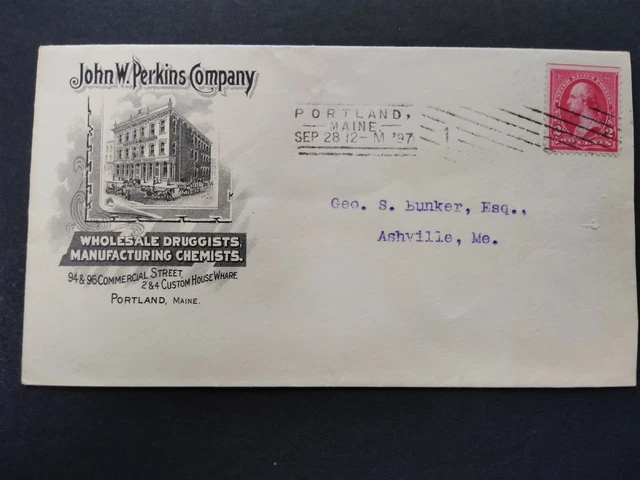 John W. Perkins Company
WHOLESALE DRUGGISTS,
MANUFACTURING CHEMISTS.
94 & 96 COMMERCIAL STREET,
2 & 4 CUSTOM HOUSE WHARF,
PORTLAND, MAINE.
PORTLAND,
MAINE
SEP 28 12-M '97
1
Geo. S. Bunker, Esq.,
Ashville, Me.